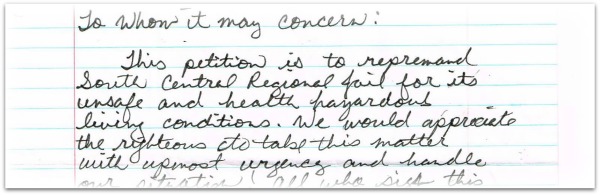 To Whom it may concern:
This petition is to repremand
South Central Regional Jail for its
unsafe and health hazardous
living conditions. We would appreciate
the righteous to take this matter
with upmost urgency and handle
our situation! All who sign this